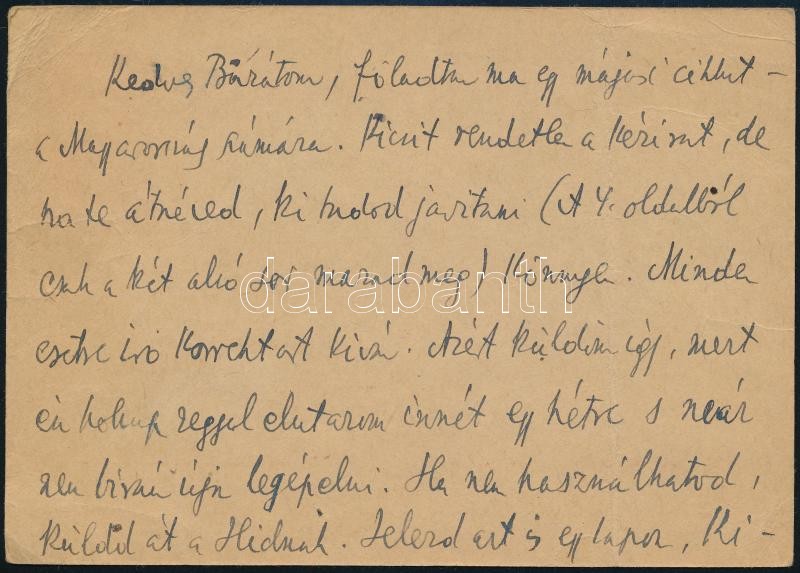 Kedves Barátom, föladtam ma egy májusi cikket –
a Magyarország számára. Kicsit rendetlen a kézirat, de
ha te átnézed, ki tudod javítani (A 4. oldalból
csak a két alsó sor marad meg) könnyen. Minden
esetre írói korrektort kíván. Azért küldöm így, mert
én holnap reggel elutazom innét egy hétre s már
nem bírnám újra legépelni. Ha nem használhatod,
küldd át a Hídnak. Jelezd azt is egy lapon, Ki-
darabanth